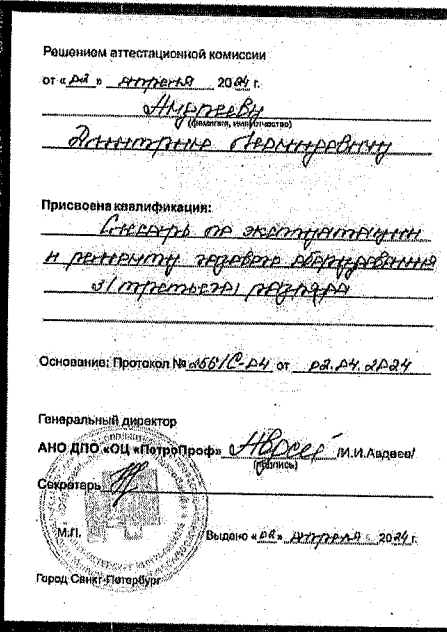 Решением аттестационной комиссии
от «02» апреля 2024 г.
(фамилия, имя, отчество)
Дмитрию
Присвоена квалификация:
Слесарь по эксплуатации
и ремонту газового оборудования
3/третьего/ разряда
Основание: Протокол № /С-04 от 02.04.2024
Генеральный директор
АНО ДПО «ОЦ «ПетроПроф» /И.И.Авдеев/
(подпись)
Секретарь
М.П. Выдано «02» апреля 2024 г.
Город Санкт-Петербург